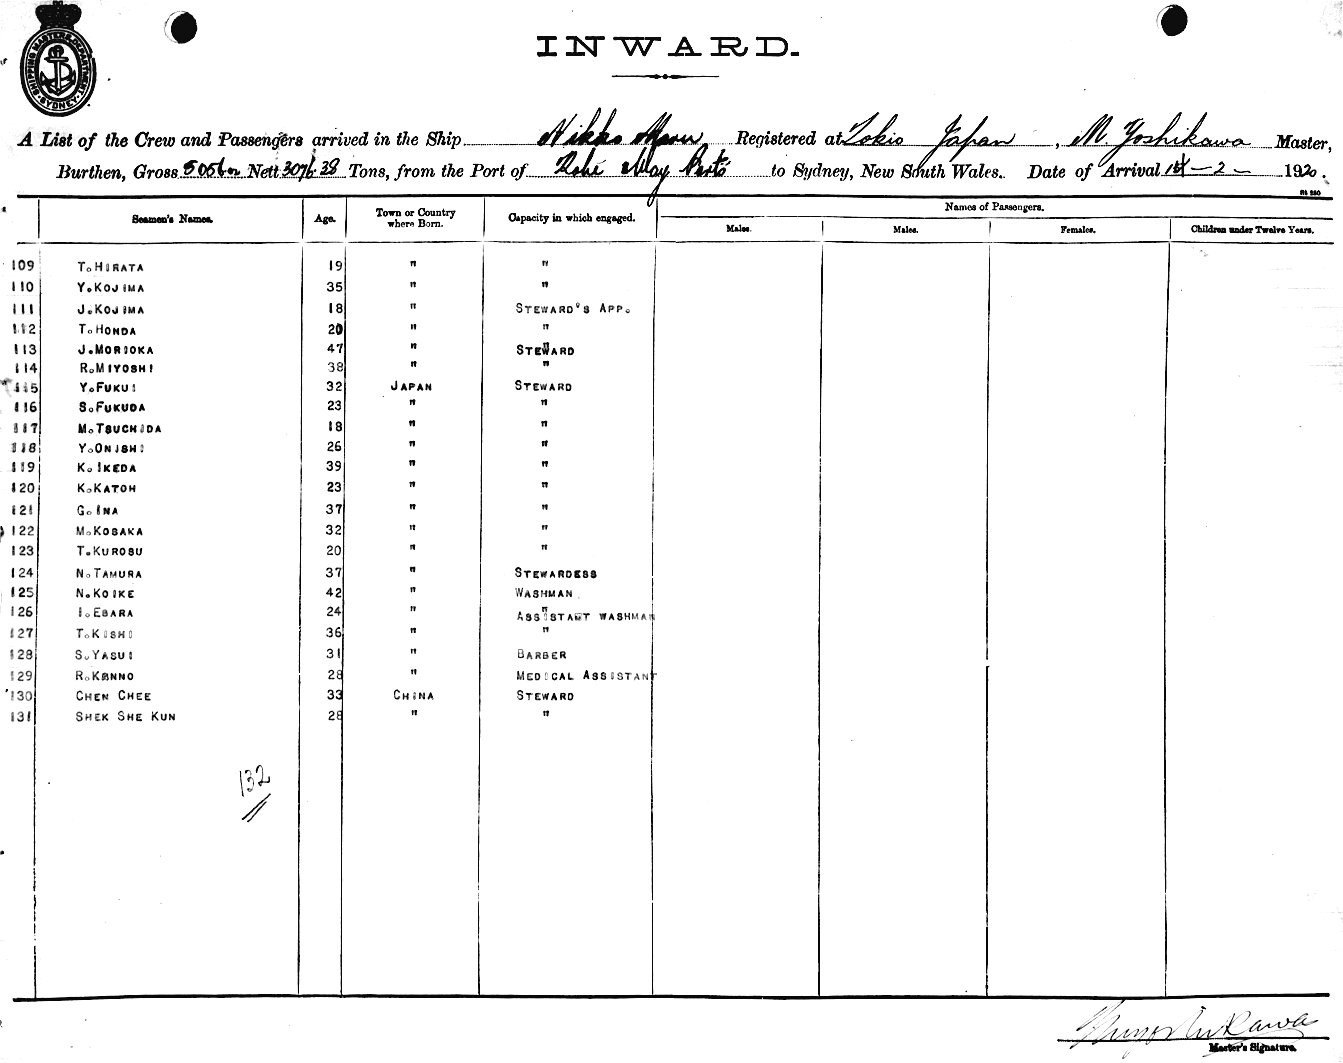 SHIPPING MASTERS DEPARTMENT
SYDNEY
INWARD.
A List of the Crew and Passengers arrived in the Ship Nikko Maru Registered at Tokio Japan, M. Yoshikawa Master,
Burthen, Gross Nett 3076.38 Tons, from the Port of Kobe Way Ports to Sydney, New South Wales. Date of Arrival -2- 1920.
Seamen's Names. Age. Town or Country where Born. Capacity in which engaged. Names of Passengers.
Males. Males. Females. Children under Twelve Years.
109 T.HIRATA 19 " "
110 Y.KOJIMA 35 " "
111 J.KOJIMA 18 " STEWARD'S APP.
112 T.HONDA 20 " "
113 J.MORIOKA 47 " STEWARD
114 R.MIYOSHI 38 " "
115 Y.FUKUI 32 JAPAN STEWARD
116 S.FUKUDA 23 " "
117 M.TSUCHIDA 18 " "
118 Y.ONISHI 26 " "
119 K.IKEDA 39 " "
120 K.KATOH 23 " "
121 G.INA 37 " "
122 M.KOSAKA 32 " "
123 T.KUROSU 20 " "
124 N.TAMURA 37 " STEWARDESS
125 N.KOIKE 42 " WASHMAN
126 I.EBARA 24 " ASSISTANT WASHMAN
127 T.KISHI 36 " "
128 S.YASUI 31 " BARBER
129 R.KONNO 28 " MEDICAL ASSISTANT
130 CHEN CHEE 33 CHINA STEWARD
131 SHEK SHE KUN 28 " "
132
Master's Signature.